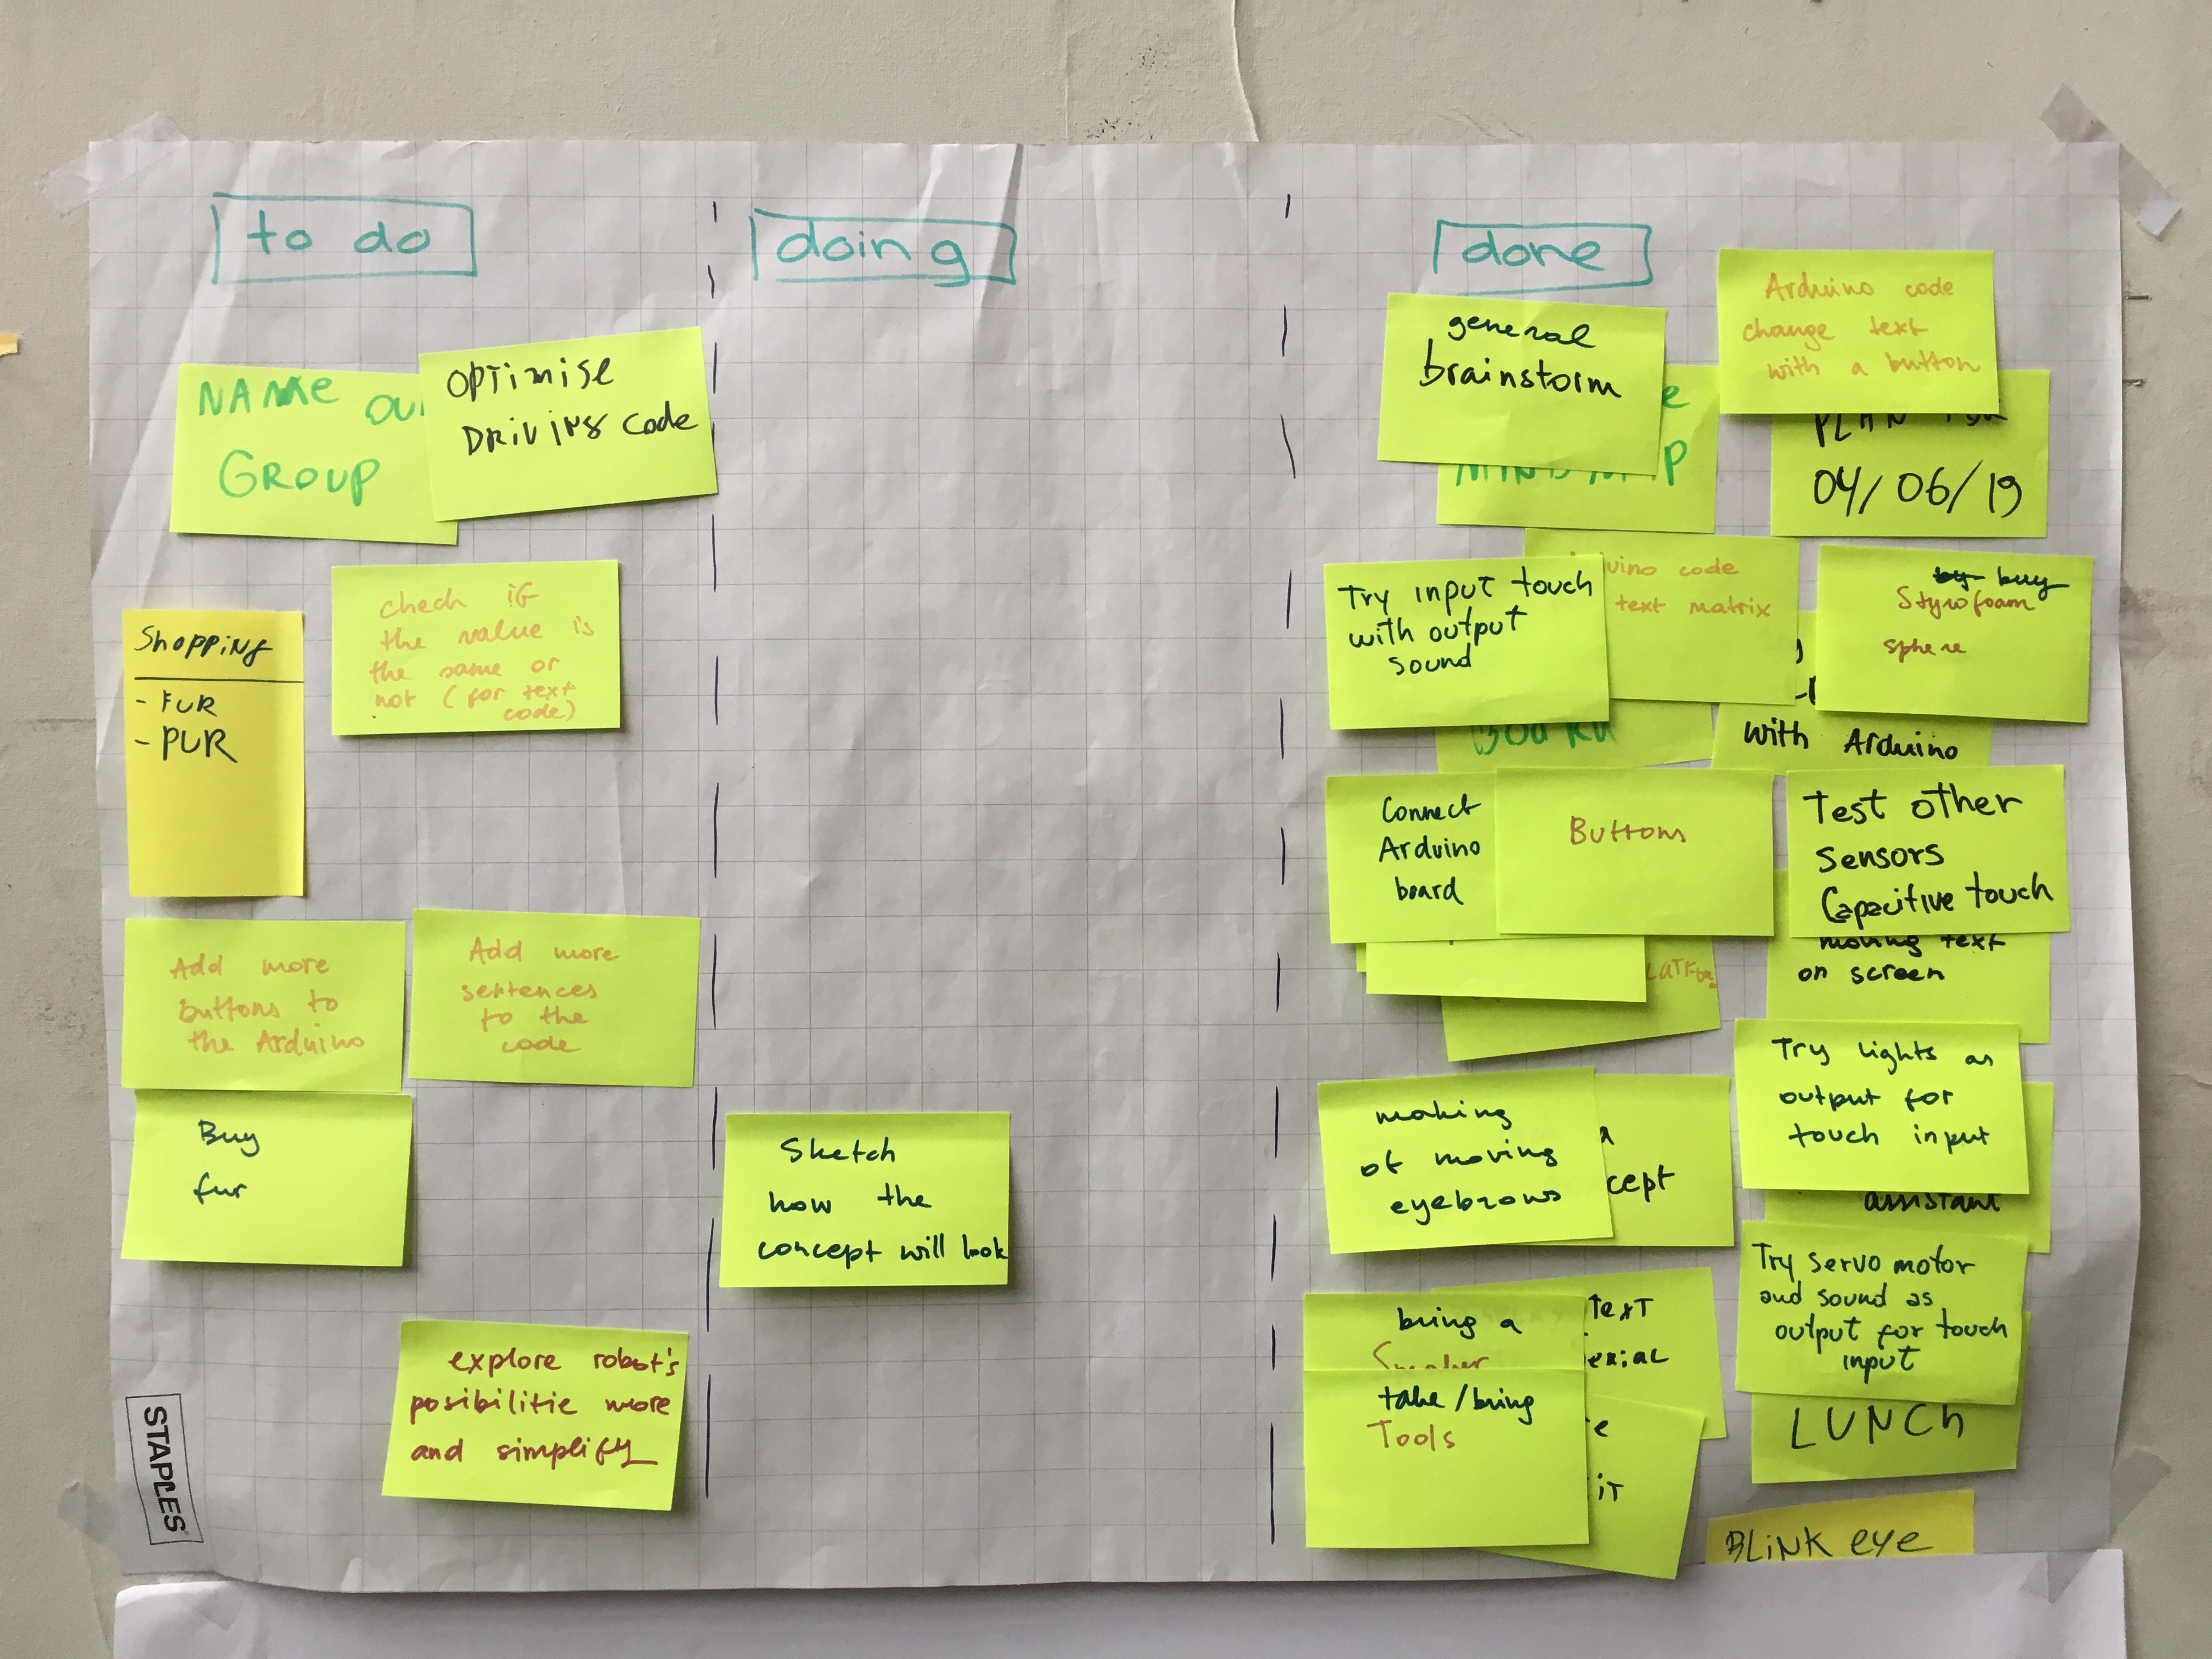 to do
doing
done
NAME OU
GROUP
OPTIMISE
DRIVING code
Shopping
- FUR
- PUR
check if
the value is
the same or
not (for text
code)
Add more
buttons to
the Arduino
Add more
sentences
to the
code
Buy
fur
explore robot's
posibilitie more
and simplify
STAPLES
Sketch
how the
concept will look
general
brainstorm
Arduino code
change text
with a button
04/06/19
Try input touch
with output
sound
code
text matrix
by buy
Styrofoam
sphere
with Arduino
Connect
Arduino
board
Buttons
Test other
sensors
Capacitive touch
moving text
on screen
making
of moving
eyebrows
cept
Try lights as
output for
touch input
assistant
Try servo motor
and sound as
output for touch
input
LUNCh
bring a
Speaker
take/bring
Tools
Text
erial
e
iT
BLINK eye